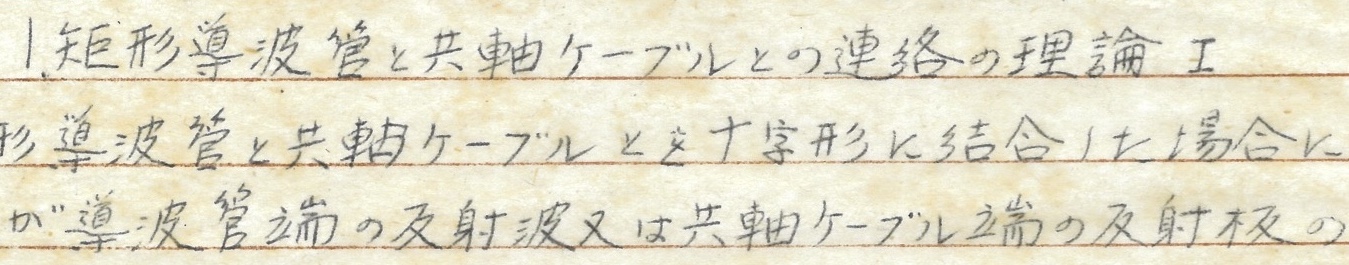 1.矩形導波管と共軸ケーブルとの連絡の理論 I
形導波管と共軸ケーブルとを十字形に結合した場合に
が導波管端の反射波又は共軸ケーブル端の反射板の